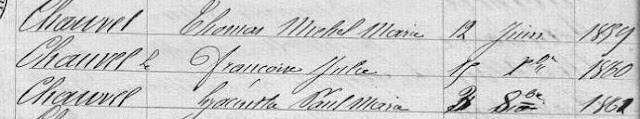 Chauvel Thomas Michel Marie 12 Juin 1859
Chauvel le Françoise Julie 15 1860
Chauvel Hyacinthe Paul Marie 8bre